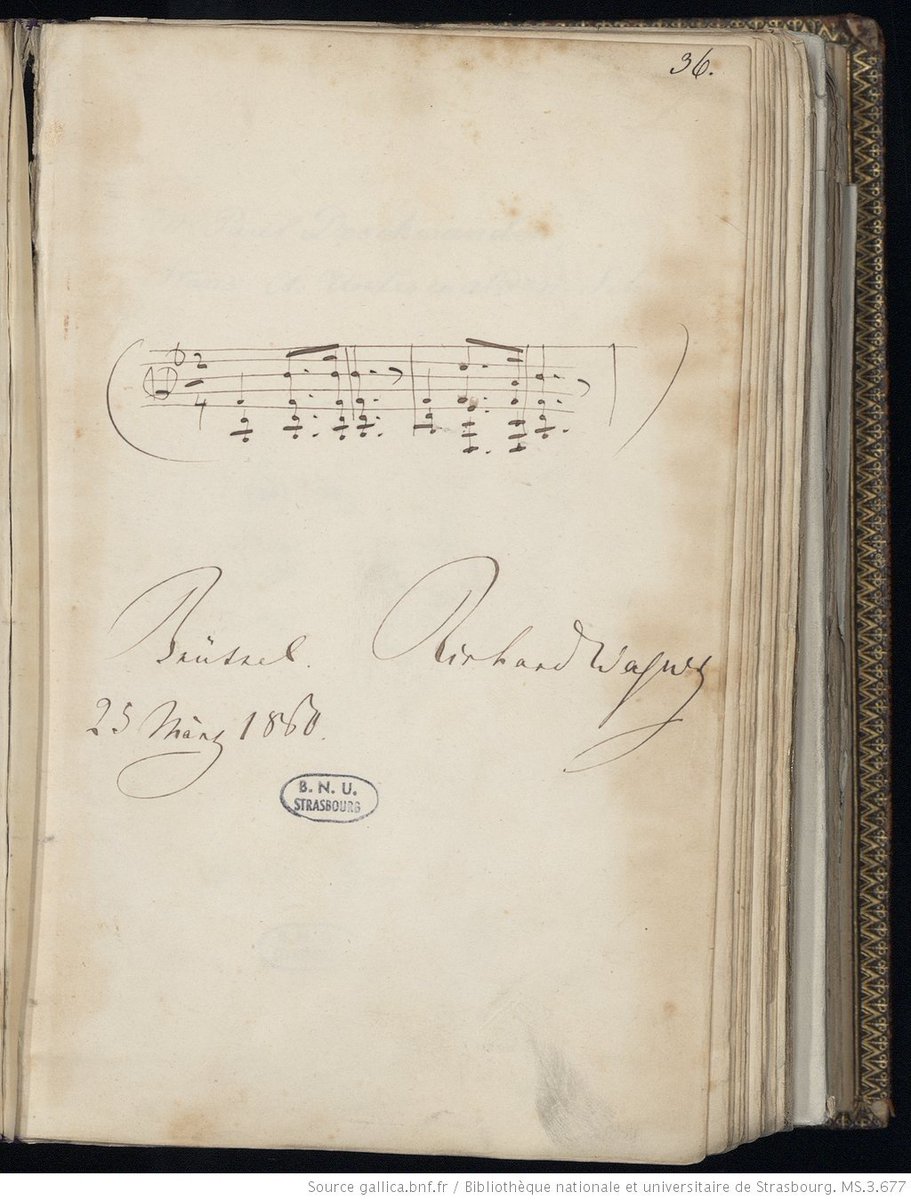 36.
2
4
Brüssel. Richard Wagner
25 März 1860.
B. N. U.
STRASBOURG
Source gallica.bnf.fr / Bibliothèque nationale et universitaire de Strasbourg. MS.3.677